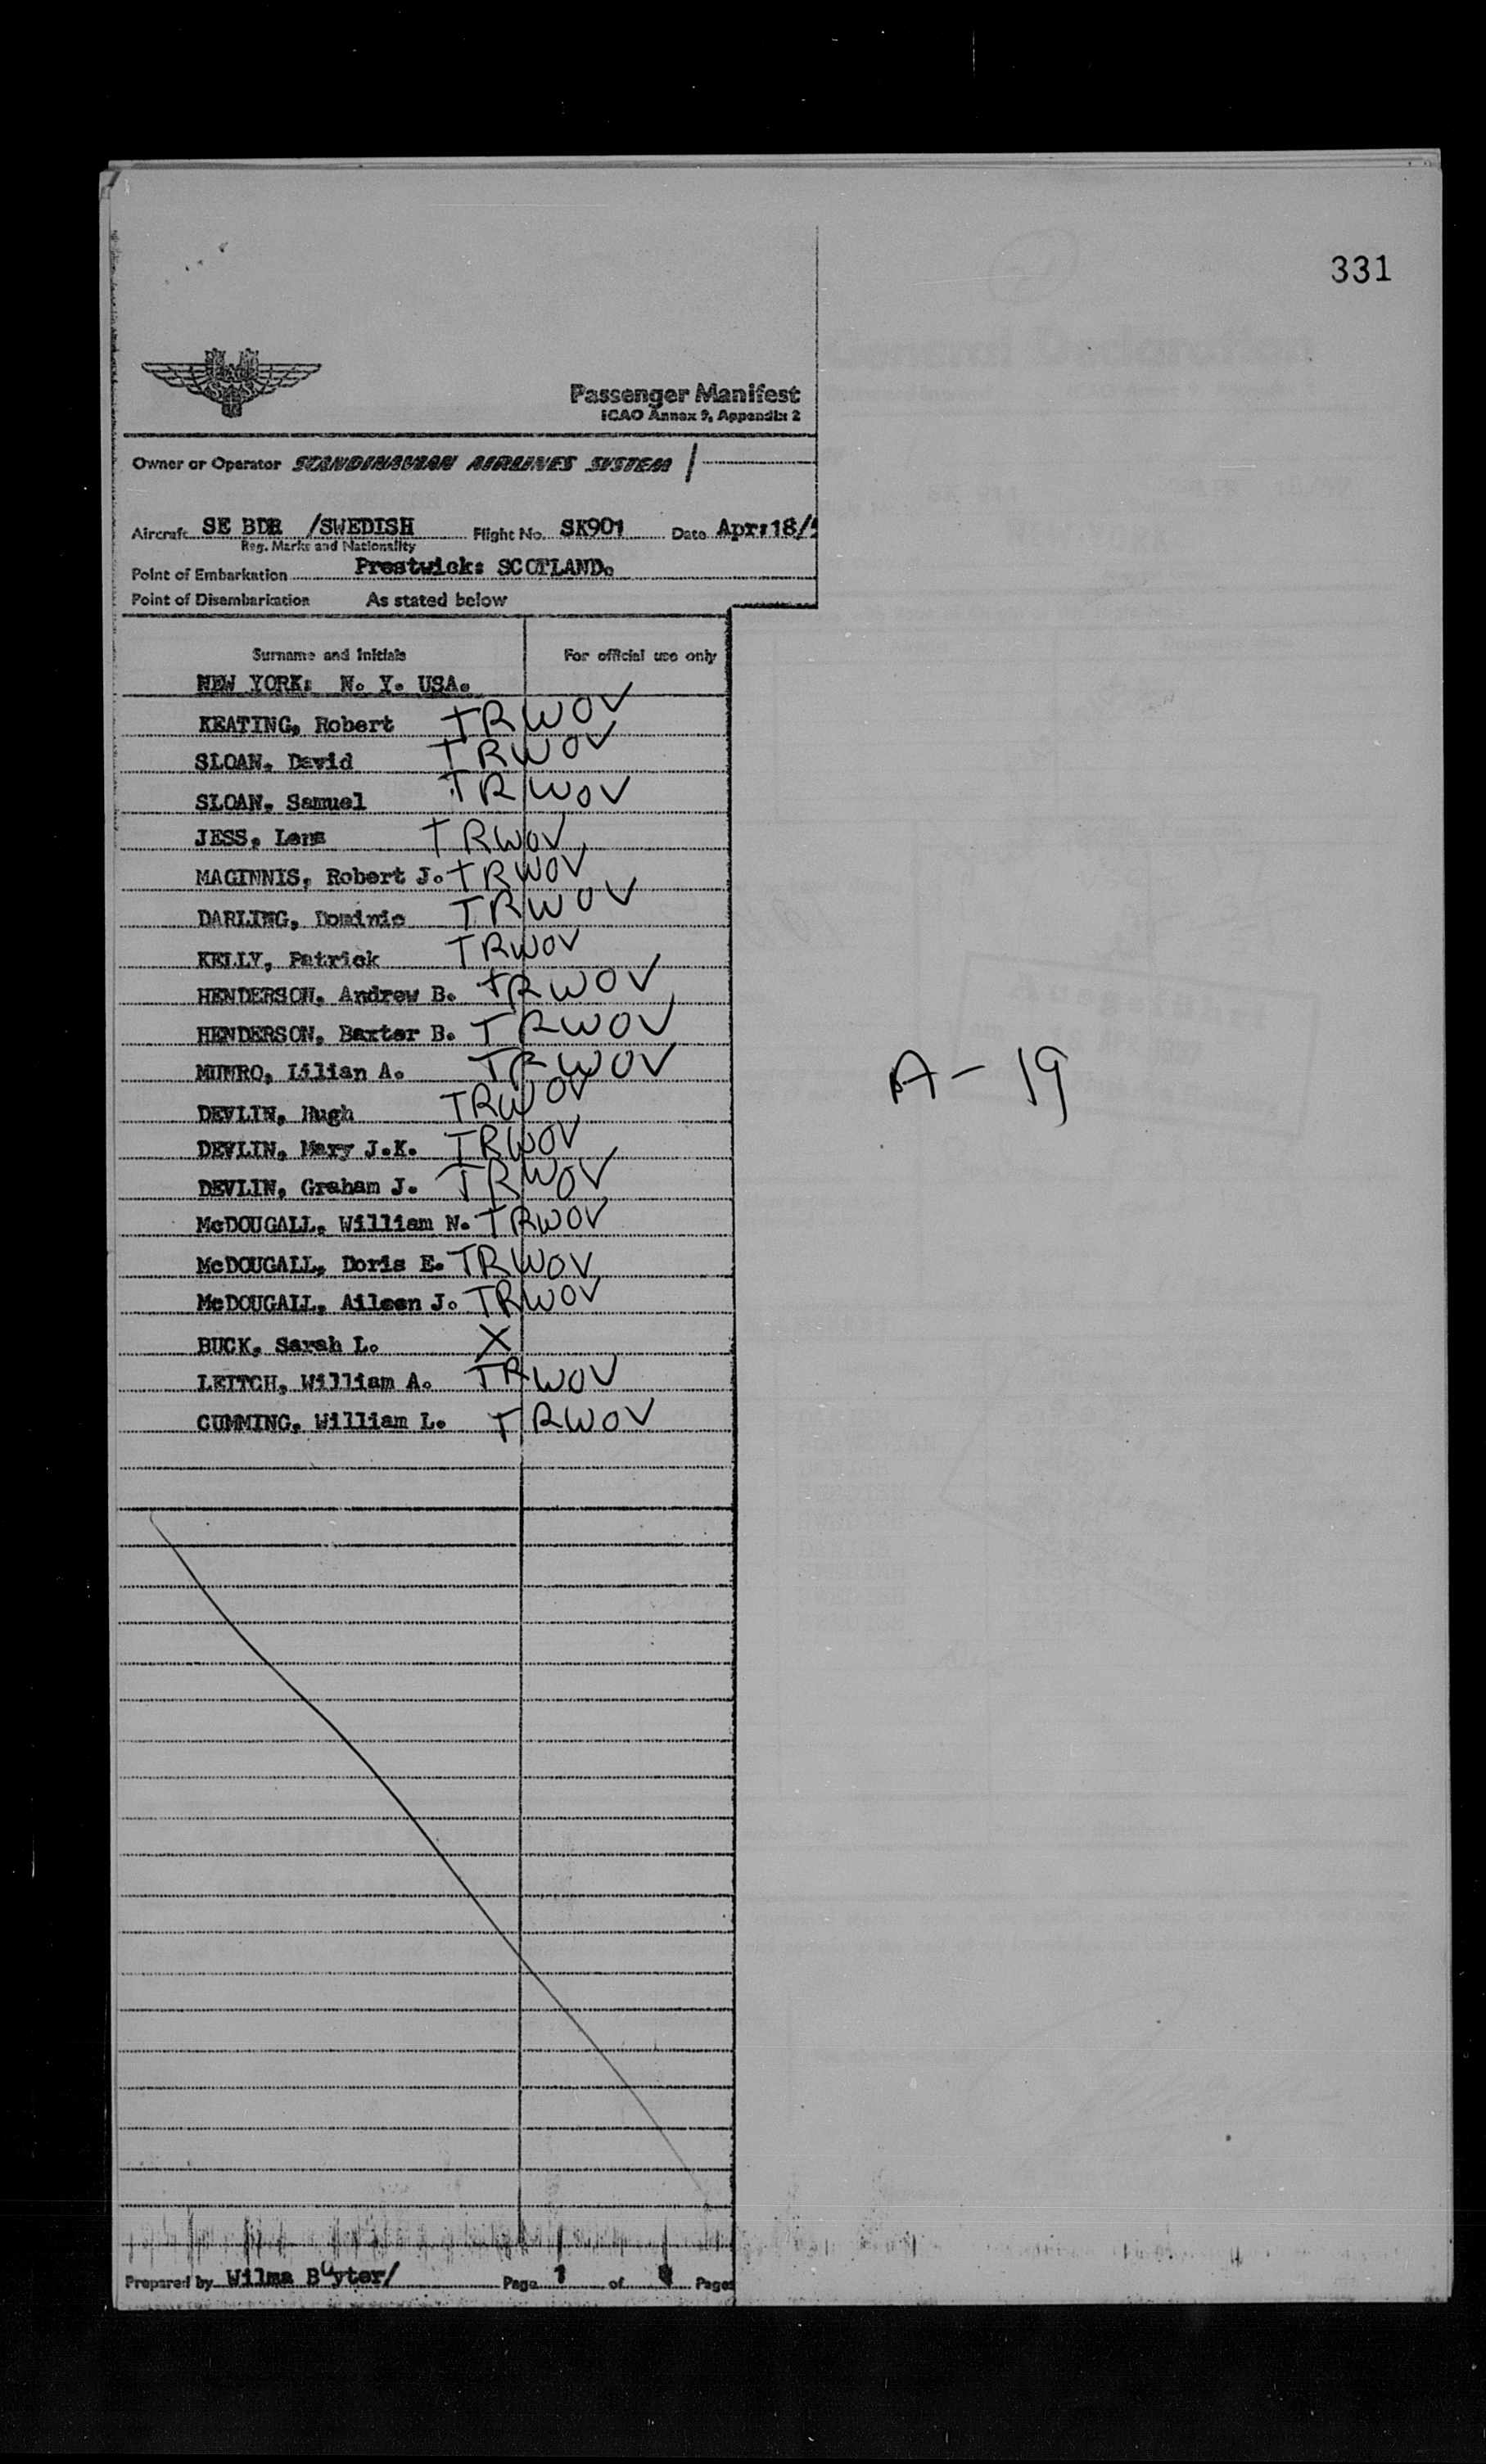 331
Passenger Manifest
ICAO Annex 9, Appendix 2
Owner or Operator SCANDINAVIAN AIRLINES SYSTEM
Aircraft SE BDR /SWEDISH Flight No. SK901 Date Apr:18/
Reg. Marks and Nationality
Point of Embarkation Prestwick: SCOTLAND.
Point of Disembarkation As stated below
Surname and Initials For official use only
NEW YORK: N. Y. USA.
KEATING, Robert TRWOV
SLOAN, David TRWOV
SLOAN, Samuel TRWOV
JESS, Lena TRWOV
MAGINNIS, Robert J. TRWOV
DARLING, Dominic TRWOV
KELLY, Patrick TRWOV
HENDERSON, Andrew B. TRWOV
HENDERSON, Baxter B. TRWOV
MUNRO, Lilian A. TRWOV
DEVLIN, Hugh TRWOV
DEVLIN, Mary J.K. TRWOV
DEVLIN, Graham J. TRWOV
McDOUGALL, William N. TRWOV
McDOUGALL, Doris E. TRWOV
McDOUGALL, Aileen J. TRWOV
BUCK, Sarah L. X
LEITCH, William A. TRWOV
CUMMING, William L. TRWOV
A-19
Prepared by Wilma Buyter/ Page 1 of Pages